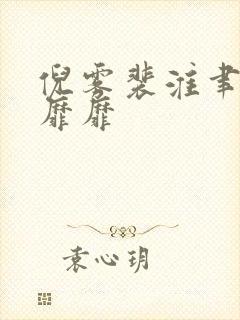 倪雾裴淮聿
靡靡
袁心玥